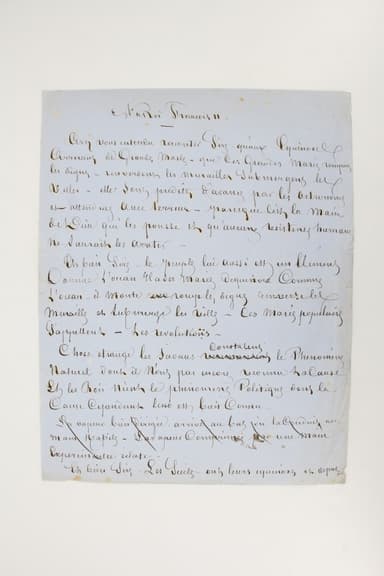 Au Roi François II
Avez vous entendu raconter Sire qu'aux Equinoxes
arrivaient de Grandes Marées - que les Grandes Marées rompaient
les digues - renversent les murailles submergent les
Villes - elle sont prédites d'avance par les astronomes
et attendues avec terreur - parceque c'est la Main
de Dieu qui les pousse et qu'aucune resistance humaine
ne saurait les arreter -
Eh bien Sire - le peuple lui aussi est un Element
Comme l'ocean il a ses Marées d'equinoxe Comme
l'ocean il monte rompt ses digues renverse les
Murailles et submerge les villes - Ces Marées populaires
s'appellent - Les revolutions -
Chose etrange les Savants constatent le Phenomène
Naturel dont ils n'ont pas encore reconnu la Cause
Et les Rois nient le phenomène Politique dont la
Cause cependant leur est bien Connue -
La vapeur
main - La vapeur Comprimée une main
Experimentée
Eh bien Sire - Les Peuples ont leurs equinoxes et